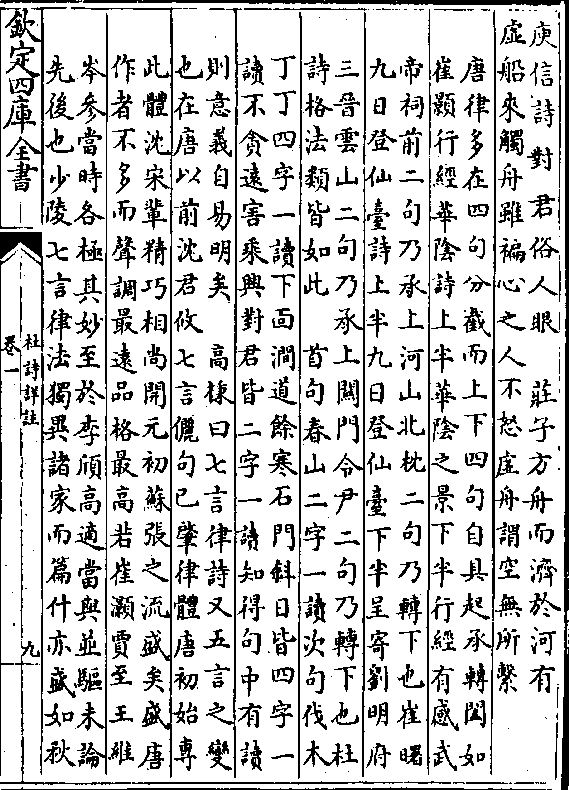 庾信詩對君俗人眼　莊子方舟而濟於河有
虛船來觸舟雖褊心之人不怒虛舟謂空無所繫
唐律多在四句分截而上下四句自具起承轉闔如
崔顥行經華陰詩上半華陰之景下半行經有感武
帝祠前二句乃承上河山北枕二句乃轉下也崔曙
九日登仙臺詩上半九日登仙臺下半呈寄劉明府
三晉雲山二句乃承上關門令尹二句乃轉下也杜
詩格法類皆如此　首句春山二字一讀次句伐木
丁丁四字一讀下面澗道餘寒石門斜日皆四字一
讀不貪遠害乘興對君皆二字一讀知得句中有讀
則意義自易明矣　高棅曰七言律詩又五言之變
也在唐以前沈君攸七言儷句已肇律體唐初始專
此體沈宋輩精巧相尚開元初蘇張之流盛矣盛唐
作者不多而聲調最遠品格最高若崔顥賈至王維
岑參當時各極其妙至於李頎高適當與並驅未論
先後也少陵七言律法獨異諸家而篇什亦盛如秋
欽定四庫全書
杜詩詳註
卷一
九